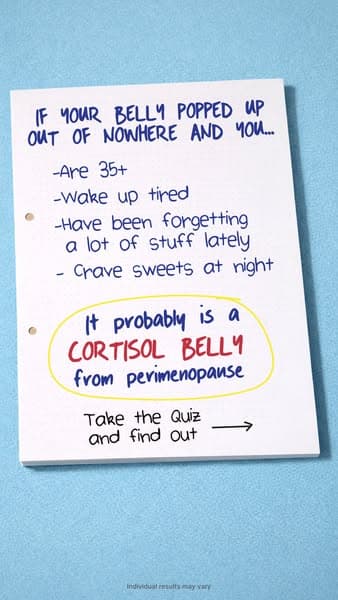 IF YOUR BELLY POPPED UP
OUT OF NOWHERE AND YOU...
-Are 35+
-Wake up tired
-Have been forgetting
a lot of stuff lately
- Crave sweets at night
It probably is a
CORTISOL BELLY
from perimenopause
Take the Quiz
and find out
Individual results may vary